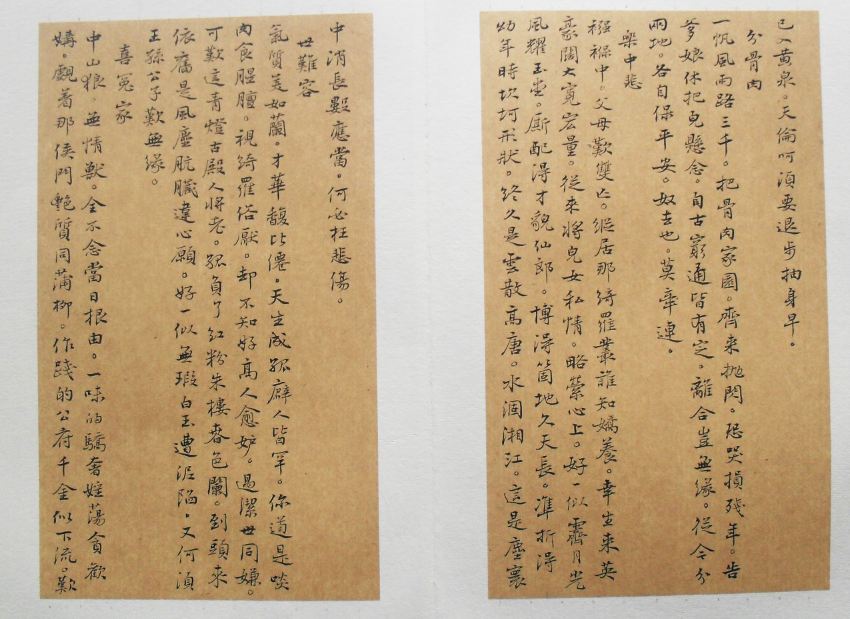 已入黄泉。天倫呵須要退步抽身早。
分骨肉
一帆風雨路三千。把骨肉家園。齊來抛閃。恐哭損殘年。告
爹娘休把兒懸念。自古窮通皆有定。離合豈無緣。從今分
兩地。各自保平安。奴去也。莫牽連。
樂中悲
襁褓中。父母歎雙亡。縱居那綺羅叢誰知嬌養。幸生來英
豪闊大寬宏量。從來將兒女私情。略縈心上。好一似霽月光
風耀玉堂。厮配得才貌仙郎。博得箇地久天長。準折得
幼年時坎坷形狀。終久是雲散高唐。水涸湘江。這是塵寰
中消長數應當。何必枉悲傷。
世難容
氣質美如蘭。才華馥比僊。天生成孤癖人皆罕。你道是啖
肉食腥膻。視綺羅俗厭。却不知好高人愈妒。過潔世同嫌。
可歎這青燈古殿人將老。孤負了紅粉朱樓春色闌。到頭來
依舊是風塵骯臟違心願。好一似無瑕白玉遭泥陷。又何須
王孫公子歎無緣。
喜冤家
中山狼。無情獸。全不念當日根由。一味的驕奢婬蕩貪歡
媾。覷着那侯門艷質同蒲柳。作踐的公府千金似下流。歎